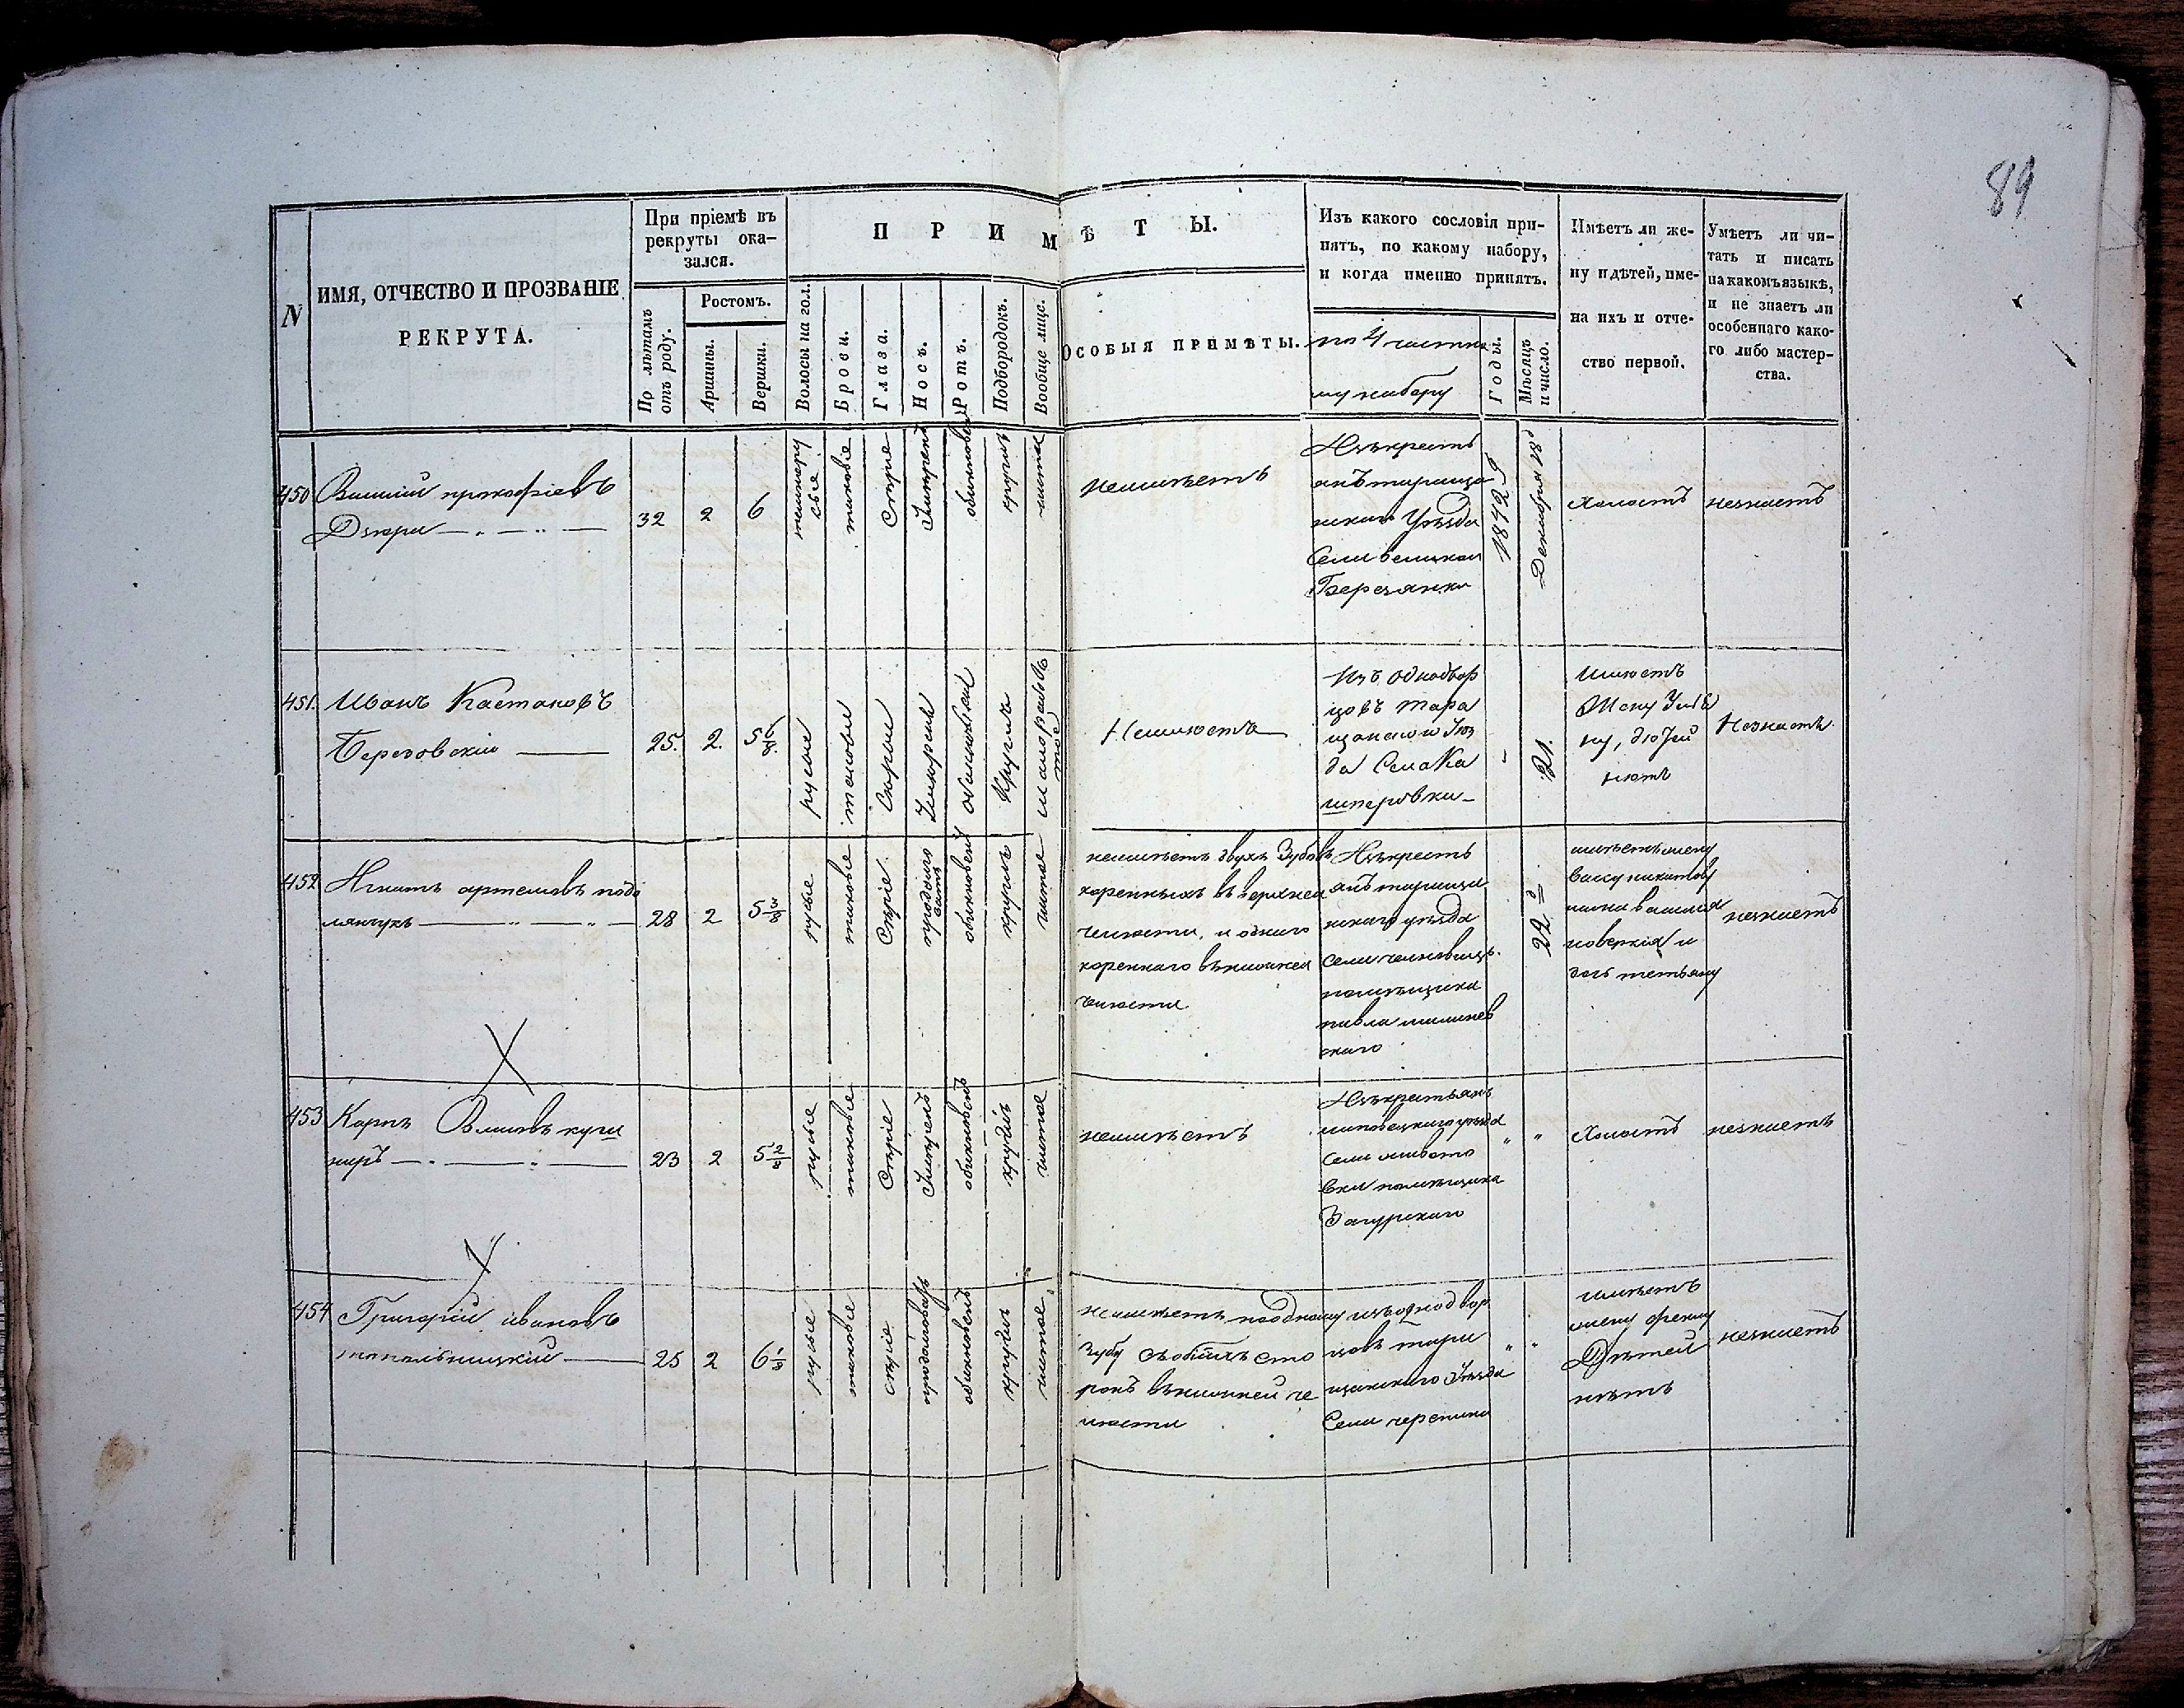 89
N
ИМЯ, ОТЧЕСТВО И ПРОЗВАНІЕ
РЕКРУТА.
При пріемѣ въ
рекруты ока-
зался.
По лѣтамъ
отъ роду.
Ростомъ.
Аршины.
Вершки.
ПРИМѢТЫ.
Волосы на гол.
Брови.
Глаза.
Носъ.
Ротъ.
Подбородокъ.
Вообще лице.
ОСОБЫЯ ПРИМѢТЫ.
Изъ какого сословія при-
нятъ, по какому набору,
и когда именно принятъ.
по 4 частно
му набору
Годы.
Мѣсяцъ
и число.
Имѣетъ ли же-
ну и дѣтей, име-
на ихъ и отче-
ство первой.
Умѣетъ ли чи-
тать и писать
на какомъ языкѣ,
и не знаетъ ли
особеннаго како-
го либо мастер-
ства.
450
прокофіевъ
32
2
6
таковіе
Сѣріе
круглъ
чистое
неимѣетъ
Изъ крестъ
янъ тараща
нскаго Уѣзда
Села великои
Березянки
1842
Декабря 18
Холостъ
незнаетъ
451.
Иванъ
Березовскій
25.
2.
5 6/8.
русые
таковы
Сѣрые
Круглъ
Неимѣетъ
Изъ однодвор
цовъ тара
щанскаго Уѣз
да Села Ка
шперовки
21.
имѣетъ
Жену Улья
ну, дѣтей
нѣтъ
Незнаетъ.
452
Игнатъ артемовъ подо
лянчукъ
28
2
5 3/8
русые
таковые
Сѣріе
продолго
ватъ
обыкновенъ
круглъ
чистое
неимѣетъ двухъ Зубовъ
коренныхъ въ верхнеи
челюсти, и одного
кореннаго внижнеи
челюсти
Изъ крестъ
янъ тараща
нскаго уѣзда
села
помѣщика
павла
скаго
22
имѣетъ жену
никитову
незнаетъ
453
Карпъ
23
2
5 2/8
русые
таковые
Сѣріе
обыкновенъ
круглъ
чистое
неимѣетъ
Изъ крестьянъ
липовецкаго уѣзда
села живото
вки помѣщика
Загурскаго
Холостъ
незнаетъ
454
Григорій івановъ
25
2
6 1/8
русые
таковые
сѣріе
продолговатъ
обыкновенъ
круглъ
чистое
неимѣетъ поодному
Зубу собѣихъ сто
ронъ внижнеи че
люсти
изъ однодвор
цовъ тара
щанскаго Уѣзда
Села черепина
имѣетъ
жену
Дѣтей
нѣтъ
незнаетъ